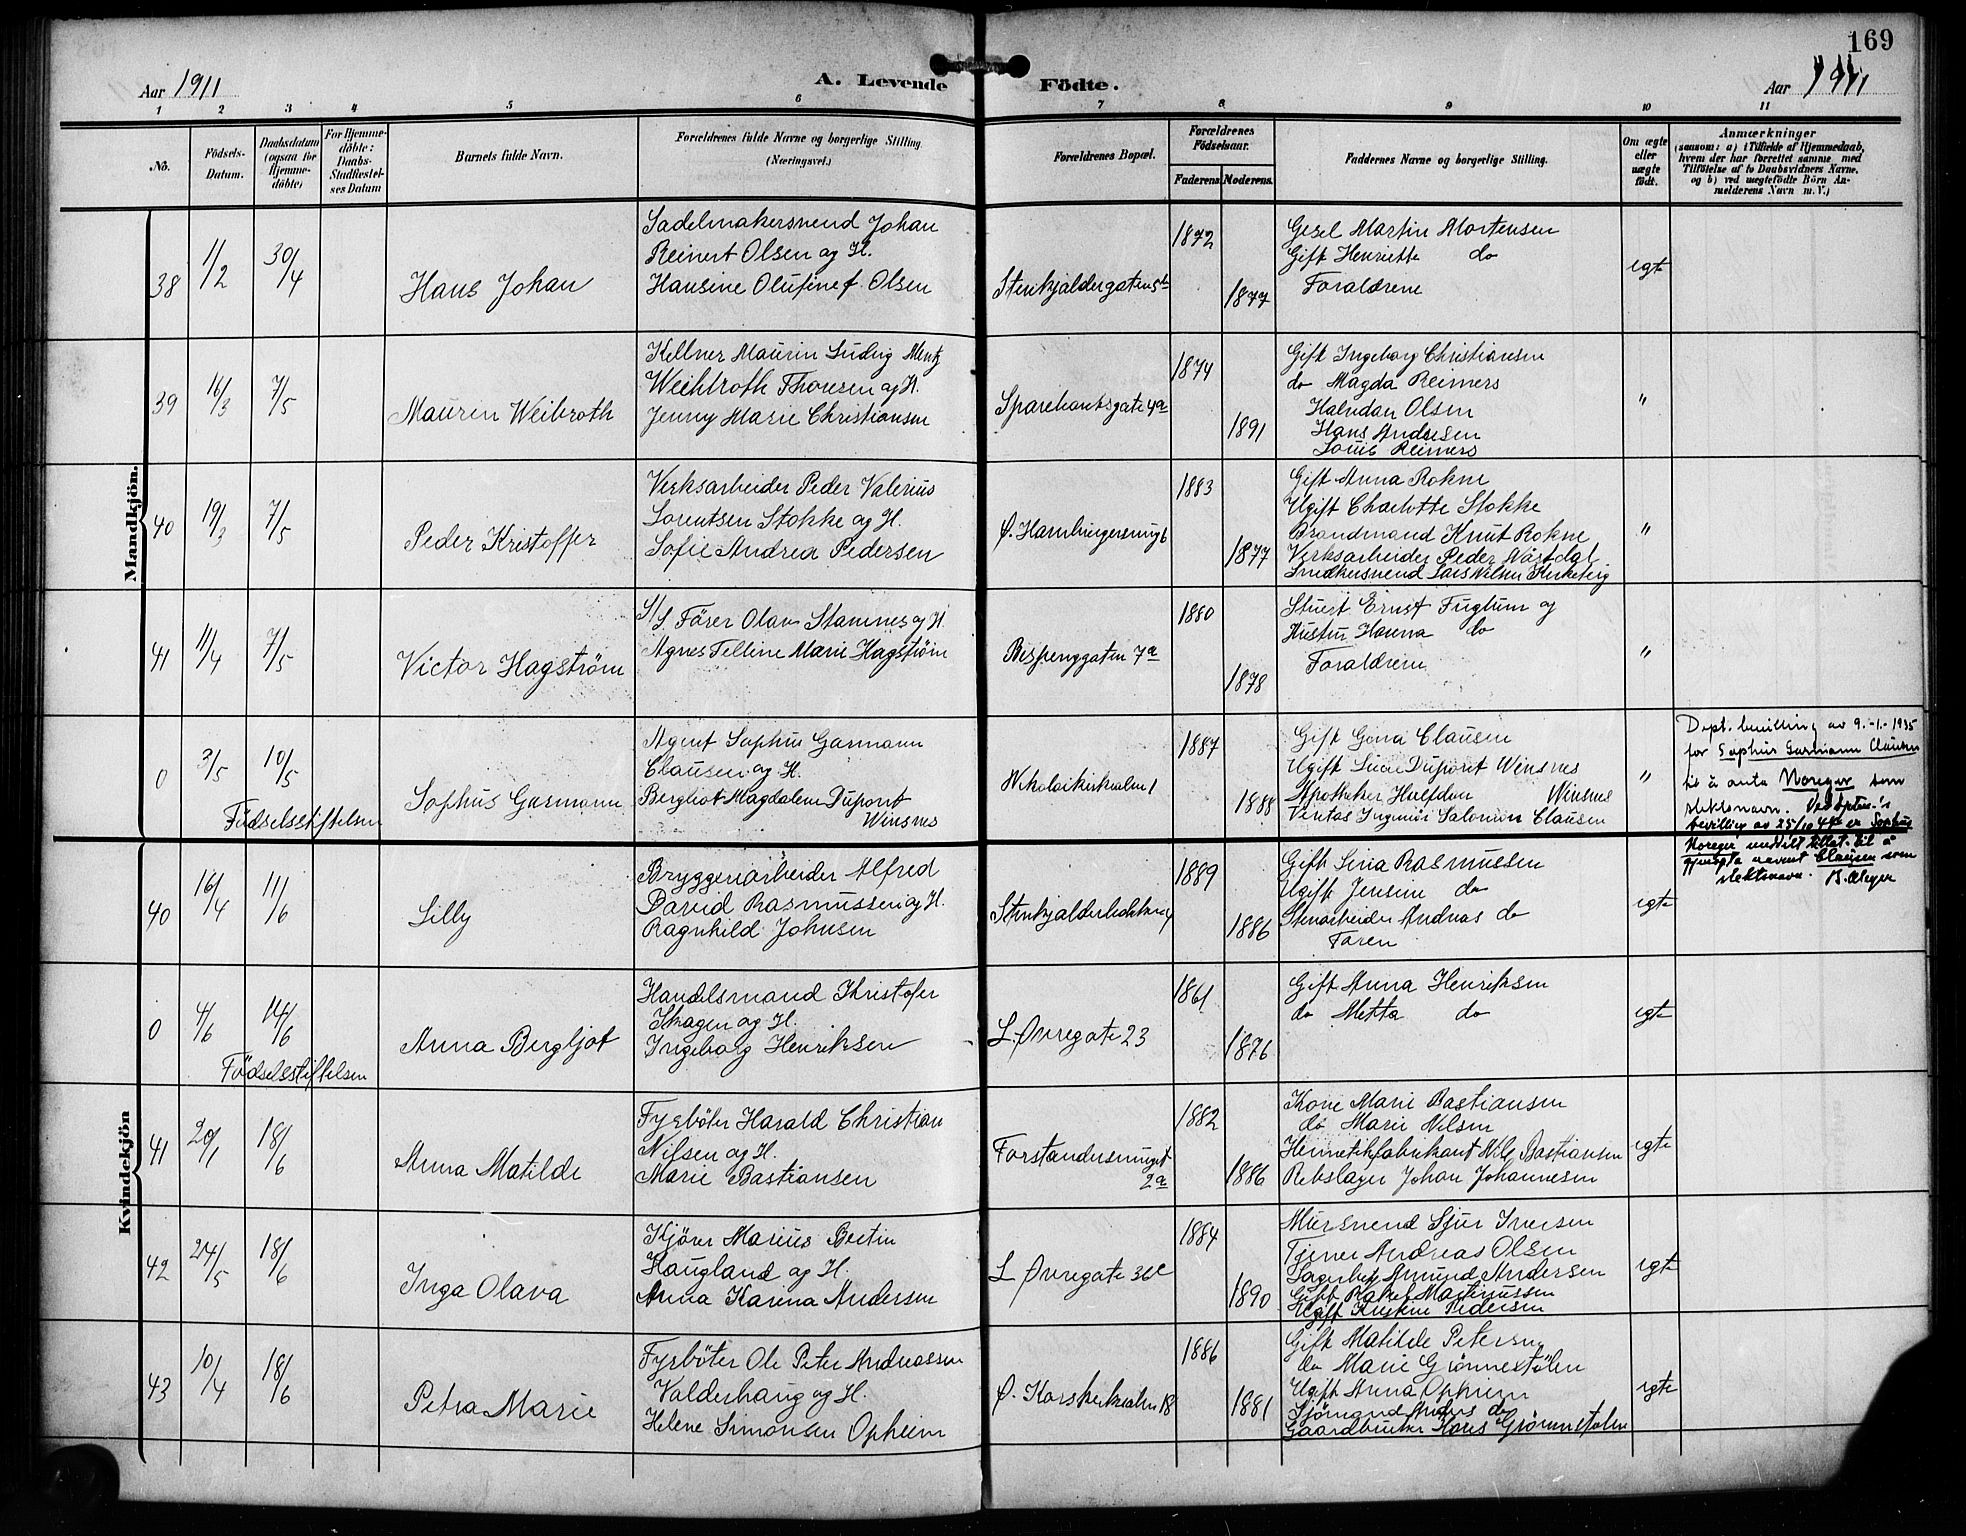 169
Aar 1911
A. Levende Födte.
Aar 1911
1 2 3 4 5 6 7 8 9 10 11
No.
Födsels-Datum.
Daabsdatum (ogsaa for Hjemme-döbte)
For Hjemme-döbte: Daabs-Stadfæstel-ses Datum
Barnets fulde Navn.
Forældrenes fulde Navne og borgerlige Stilling. (Næringsvei.)
Forældrenes Bopæl.
Forældrenes Födselsaar.
Faderens Moderens.
Faddernes Navne og borgerlige Stilling.
Om ægte eller uægte födt.
Anmærkninger
(saasom: a) i Tilfælde af Hjemmedaab,
hvem der har forrettet samme, med
Tilföielse af to Daabsvidners Navne,
og b) ved uægtefödte Börn An-
melderens Navn m. V.)
Mandkjön.
38 1/2 30/4
Hans Johan
Sadelmakersvend Johan
Reinert Olsen og H.
Hansine Olufine f. Olsen
Stenkjeldergaten 5b
1872
1877
Gesel Martin Mortensen
Gift Henriette do
Forældrene
egte
39 16/3 7/5
Maurin Weibroth
Kellner Maurin Ludvig Mentz
Weibroth Thoresen og H.
Jenny Marie Christiansen
Sparebanksgate 4a
1874
1891
Gift Ingeborg Christiansen
do Magda Reimers
Halvdan Olsen
Hans Andresen
Louis Reimers
"
40 19/3 7/5
Peder Kristoffer
Verksarbeider Peder Valerius
Lorentsen Stokke og H.
Sofie Andrea Pedersen
Ø. Hamburgersmug 6
1883
1877
Gift Anna Rokne
Ugift Charlotte Stokke
Brandmand Knut Rokne
Verksarbeider Peder
Snedkersvend Lars Nilsen
"
41 11/4 7/5
Victor Hagström
S/S. Förer Olav Stamnes og H.
Agnes Telline Marie Hagström
Bispenggaten 7a
1880
1878
Stuert Ernst Fuglum og
Hustru Hanna do
Forældrene
"
0 3/5 10/5
Födselsstiftelsen
Sophus Garmann
Agent Sophus Garmann
Clausen og H.
Bergliot Magdalene Dupont
Winsnes
Nikolaikirkealm 1
1887
1888
Gift Gina Clausen
Ugift Dupont Winsnes
Apotheker Halfdan Winsnes
Veritas Ingeniör Salomon Clausen
"
Dept. bevilling av 9.-1.-1935
for Sophus Garmann Clausen
til å anta Noreger som
slektsnavn. Ved dptm.'s
bevilling av 25/10 44 er Sophus
Noreger meddelt tillat. til å
gjenopta navnet Clausen som
slektsnavn. B. Meyer
Kvindekjön
40 16/4 11/6
Lilly
Bryggeriarbeider Alfred
David Rasmussen og H.
Ragnhild Johnsen
1889
1886
Gift Lina Rasmussen
Ugift Jensine do
Stenarbeider Andreas do
Faren
egte
0 4/6 14/6
Födselsstiftelsen
Anna Bergljot
Handelsmand Kristofer
Skagen og H.
Ingeborg Henriksen
L. Øvregate 23
1861
1876
Gift Anna Henriksen
do Metta do
egte
41 20/1 18/6
Anna Matilde
Fyrböter Harald Christian
Nilsen og H.
Marie Bastiansen
Forstandersmuget
2a
1882
1886
Kone Marie Bastiansen
do Marie Nilsen
Hermetikfabrikant Nils Bastiansen
Rebslager Johan Johannesen
egte
42 24/5 18/6
Inga Olava
Kjörer Marius Bertin
Haugland og H.
Anna Karina Andersen
L Øvregate 36c
1884
1890
Mursvend Sjur Iversen
Tjener Andreas Olsen
Lagerbet Amund Andersen
Gift Rakel Martinussen
Ugift Pedersen
egte
43 10/4 18/6
Petra Marie
Fyrböter Ole Peter Andreassen
Valderhaug og H.
Helene Simonsen Opheim
Ø. Korskirkealm 18
1886
1881
Gift Matilde Petersen
do Marie Grönnestölen
Ugift Anna Opheim
Sjömand Anders do
Gaardbruker Hans Grönnestölen
egte